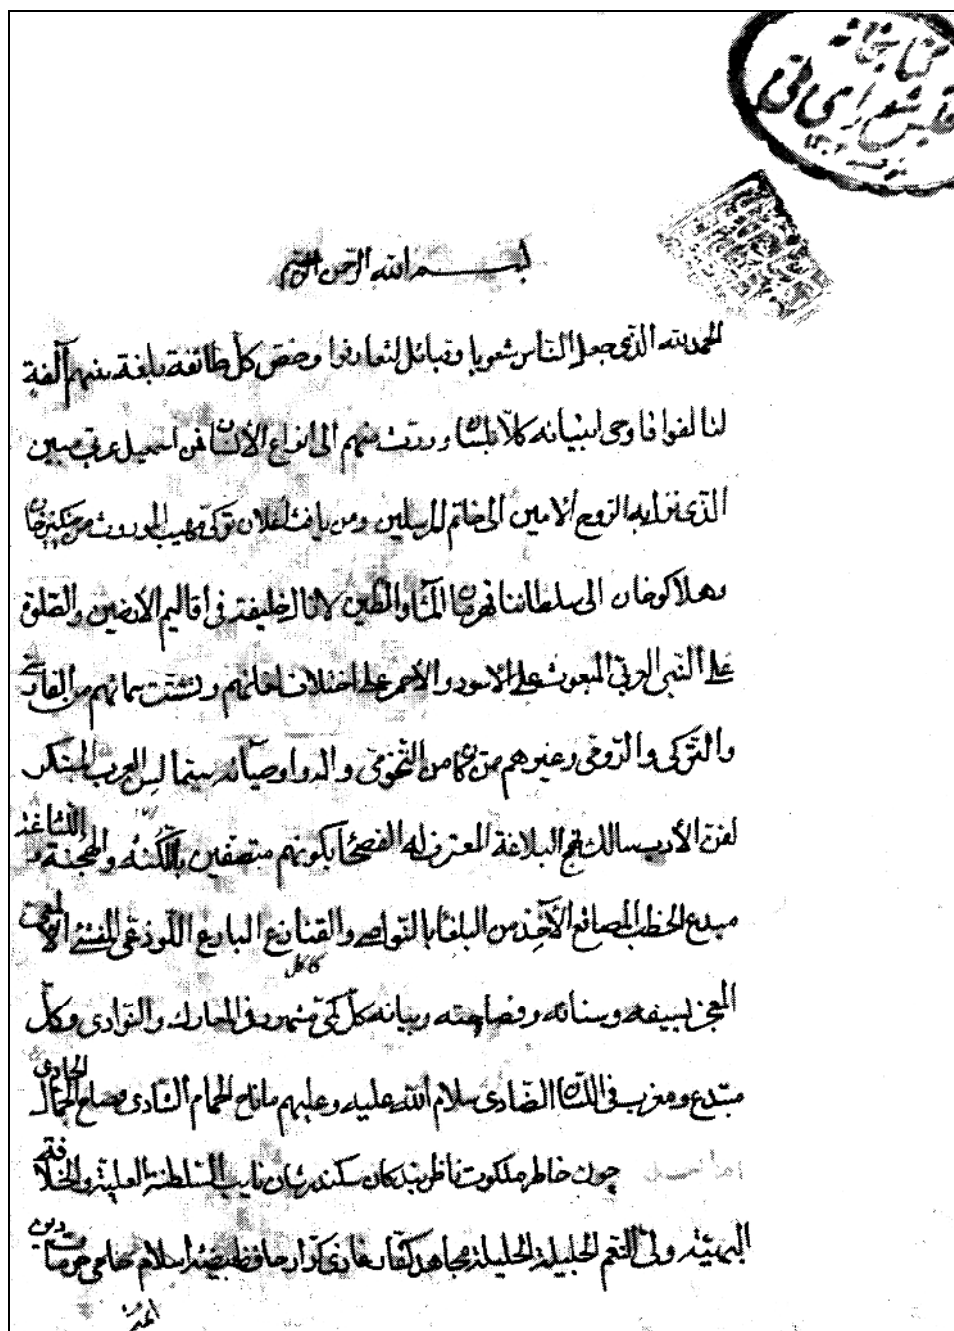 کتابخانه
مجلس شورای ملی
بسم الله الرحمن الرحیم
الحمد لله الذی جعل الناس شعوبا و قبائل لتعارفوا و خص کل طائفة بلغة بینهم آلفة
لنا لغوا فاوحی لبنیانه کلا بلسان و ورثت منهم الی انواع الأنسان فمن اسمعیل عربی مبین
الذی نزل به الروح الامین الی خاتم المرسلین ومن یافث اغلان ترکی مهیب الموروث من چنکیز خان
وهلاکوخان الی سلطاننا قهرمان الماء والطین لازال خلیفة فی اقالیم الارضین والصلوة
علی النبی العربی المبعوث علی الاسود والأحمر علی اختلاف لغاتهم و تشتت سماتهم من الفارسی
والترکی والرومی وغیرهم من التخومی واله واوصیائه سیما لیس العرب المبتکر
لفن الأدب سالك نهج البلاغة المعترف له الفصحاء بکونهم متصفین باللکنة والهجنة و اللثاغة
مبدع الخطب المصاقع الآخذ من البلغاء بالنواصی والقنازع البارع اللوذعی المنشئ الالمعی
کاکل
المعجز بسیفه وسنانه وفصاحته وبیانه کل کمی مشهور فی المعارك والنوادی وکل
مبتدع ومغرب فی اللسان الضادی سلام الله علیه وعلیهم ماناح الحمام الشادی وصلح الجمال الحادی
اما بعد چون خاطر ملکوت ناظر بندکان سکندرشان نایب السلطنة العلیة والخلافة
البهیة ولی النعم الجلیلة الجلیلة مجاهد کفار غازی کرار حافظ بیضه اسلام حامی حرمات دین